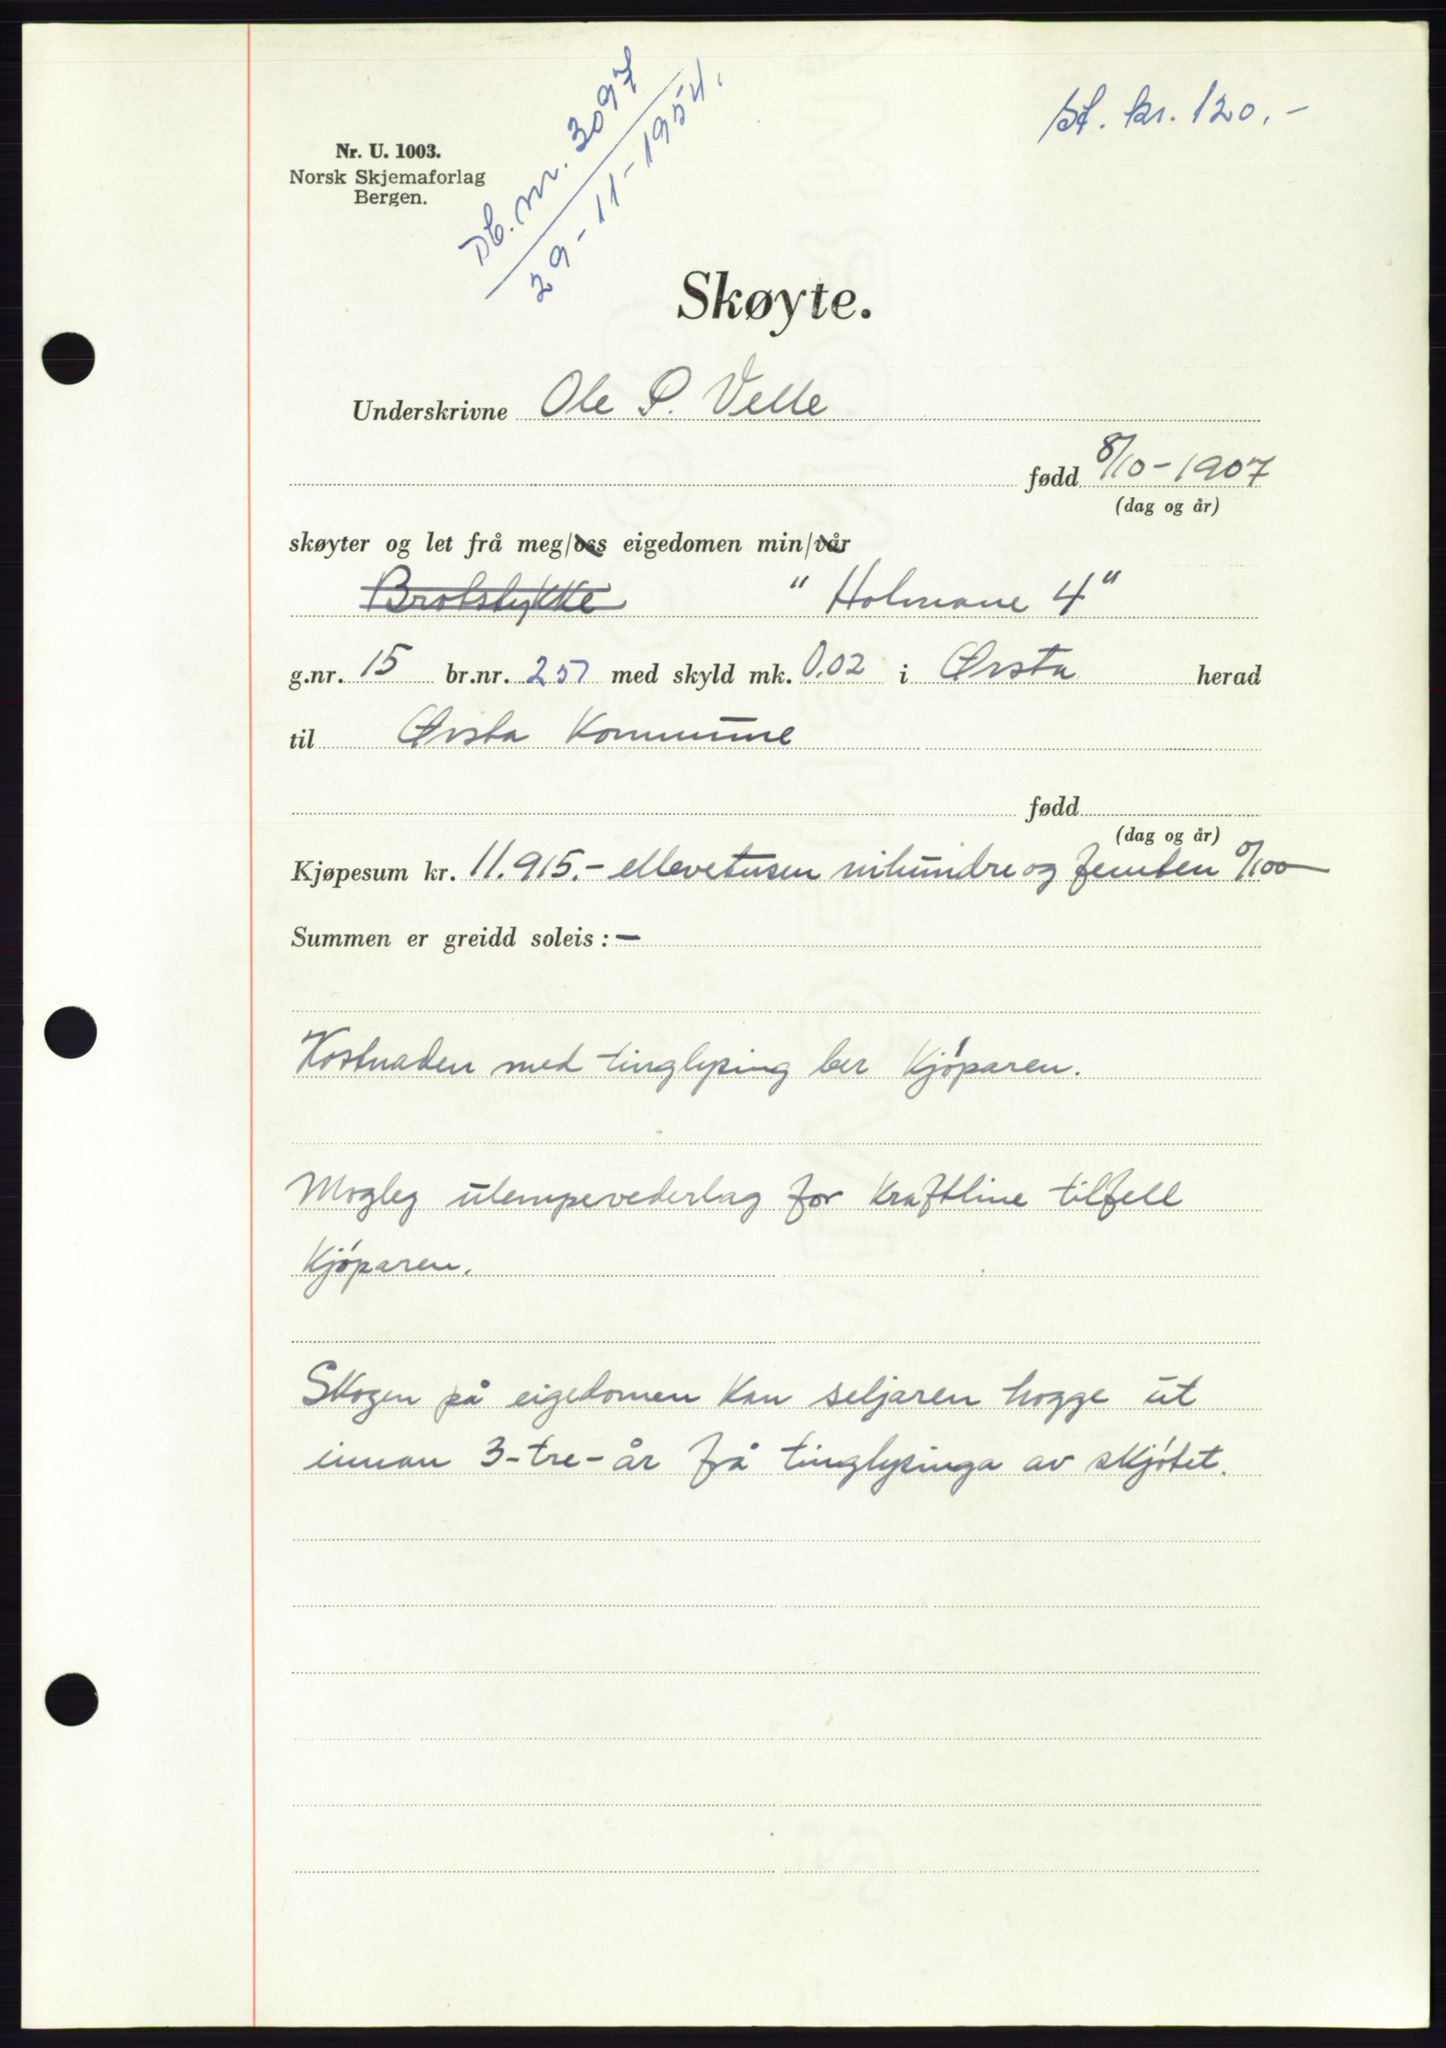 Db. nr. 3097
29-11-1954.
St. kr. 120.-
Nr. U. 1003.
Norsk Skjemaforlag
Bergen.
Skøyte.
Underskrivne Ole P. Velle
fødd 8/10-1907
(dag og år)
skøyter og let frå meg/oss eigedomen min/vår
Brotstykke "Holmane 4"
g.nr. 15 br.nr. 257 med skyld mk. 0.02 i Ørsta herad
til Ørsta Kommune
fødd
(dag og år)
Kjøpesum kr. 11.915.- ellevetusen nihundre og femten 0/100
Summen er greidd soleis: -
Kostnaden med tinglysing ber Kjöparen.
Mogleg ulempevederlag for kraftline tilfell
Kjöparen.
Skogen på eigedomen kan seljaren hogge ut
innan 3-tre-år frå tinglysinga av skjötet.